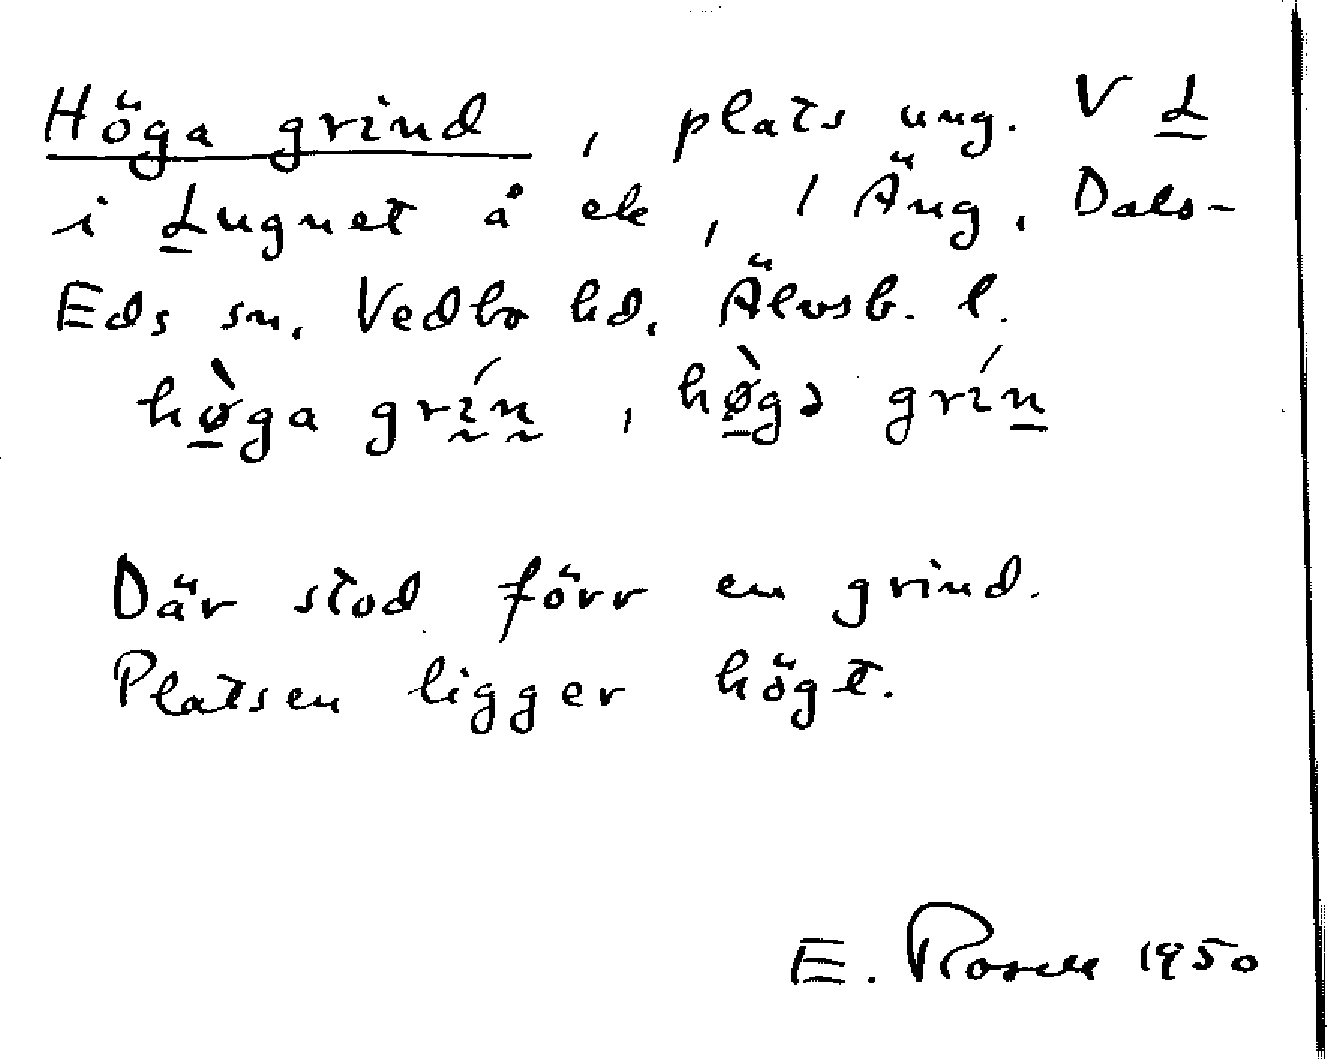 Höga grind, plats ung. V L
i Lugnet å ek, 1 Äng, Dals-
Eds sn, Vedbo hd, Älvsb. l.
hø̀ga grín, hø̀gə grín
Där stod förr en grind.
Platsen ligger högt.
E. Rosell 1950